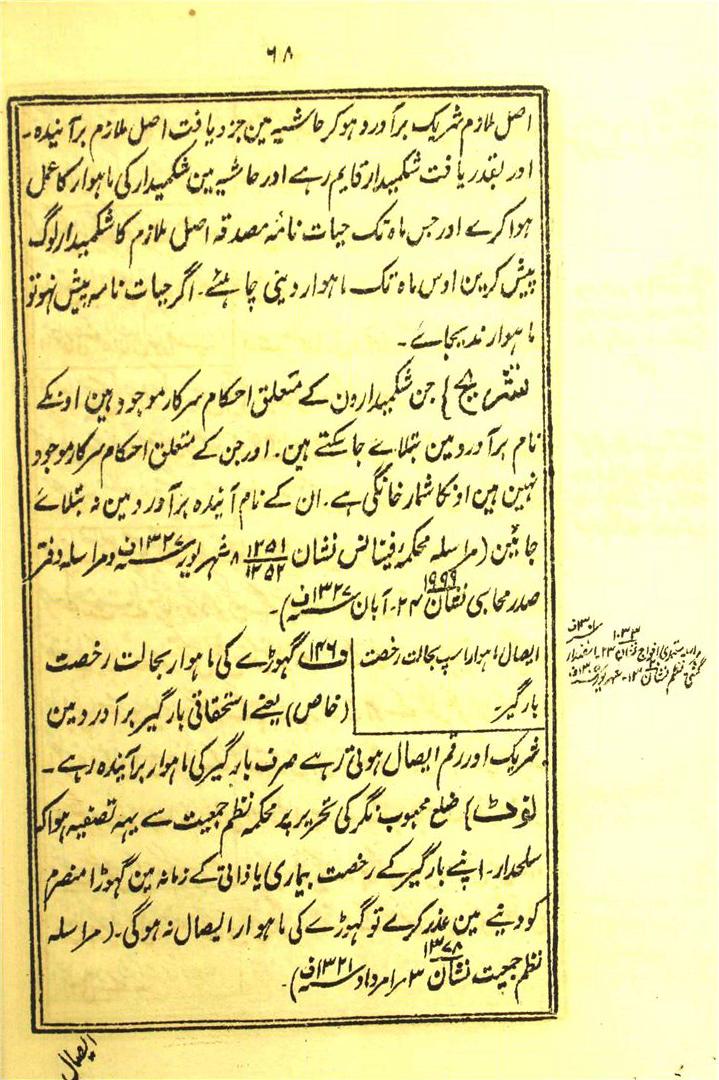 ۶۸
اصل ملازم شریک برآورد ہوکر حاشیہ مین جزد یافت اصل ملازم برآئیندہ۔
اور بقدر یافت شکمیدار قایم رہے اور حاشیہ مین شکمیدار کی ماہوار کا عمل
ہوا کرے اور جس ماہ تک حیات نامہ مصدقہ اصل ملازم کا شکمیدار لوگ
پیش کرین اوس ماہ تک ماہوار دینی چاہئے۔ اگر حیات نامہ پیش نہو تو
ماہوار ندیجاے۔
تشریح} جن شکمیدارون کے متعلق احکام سرکار موجود ہین اونکے
نام برآورد مین بتلاے جا سکتے ہین۔ اور جن کے متعلق احکام سرکار موجود
نہین ہین اونکا شمار خانگی ہے۔ ان کے نام آئیندہ برآورد مین نہ بتلاے
جائین (مراسلہ محکمہ فینانس نشان ۱۲۵۱/۱۲۵۲ ۸ شہریور سنہ ۱۳۲۷ف و مراسلہ دفتر
صدر محاسبی نشان ۱۹۹۹ ۲۴۔ آبان سنہ ۱۳۲۷ف)۔
ایصال ماہوار اسپ بحالت رخصت
بارگیر۔
ف۱۴۶ گھوڑے کی ماہوار بحالت رخصت
(خاص) یعنے استحقاقی بارگیر برآورد مین
شریک اور رقم ایصال ہوتی رہے صرف بارگیر کی ماہوار برآیندہ رہے۔
نوٹ} ضلع محبوب نگر کی تحریر پر محکمہ نظم جمعیت سے یہہ تصفیہ ہوا کہ
سلحدار۔ اپنے بارگیر کے رخصت بیماری یا ذاتی کے زمانہ مین گھوڑا منصرم
کو دینے مین عذر کرے تو گھوڑے کی ماہوار ایصال نہ ہوگی۔ (مراسلہ
نظم جمعیت نشان ۱۳۷۸ ۳ امرداد سنہ ۱۳۲۱ف)۔
۱۰۳۳
گشتی نظم نشان
ایصال